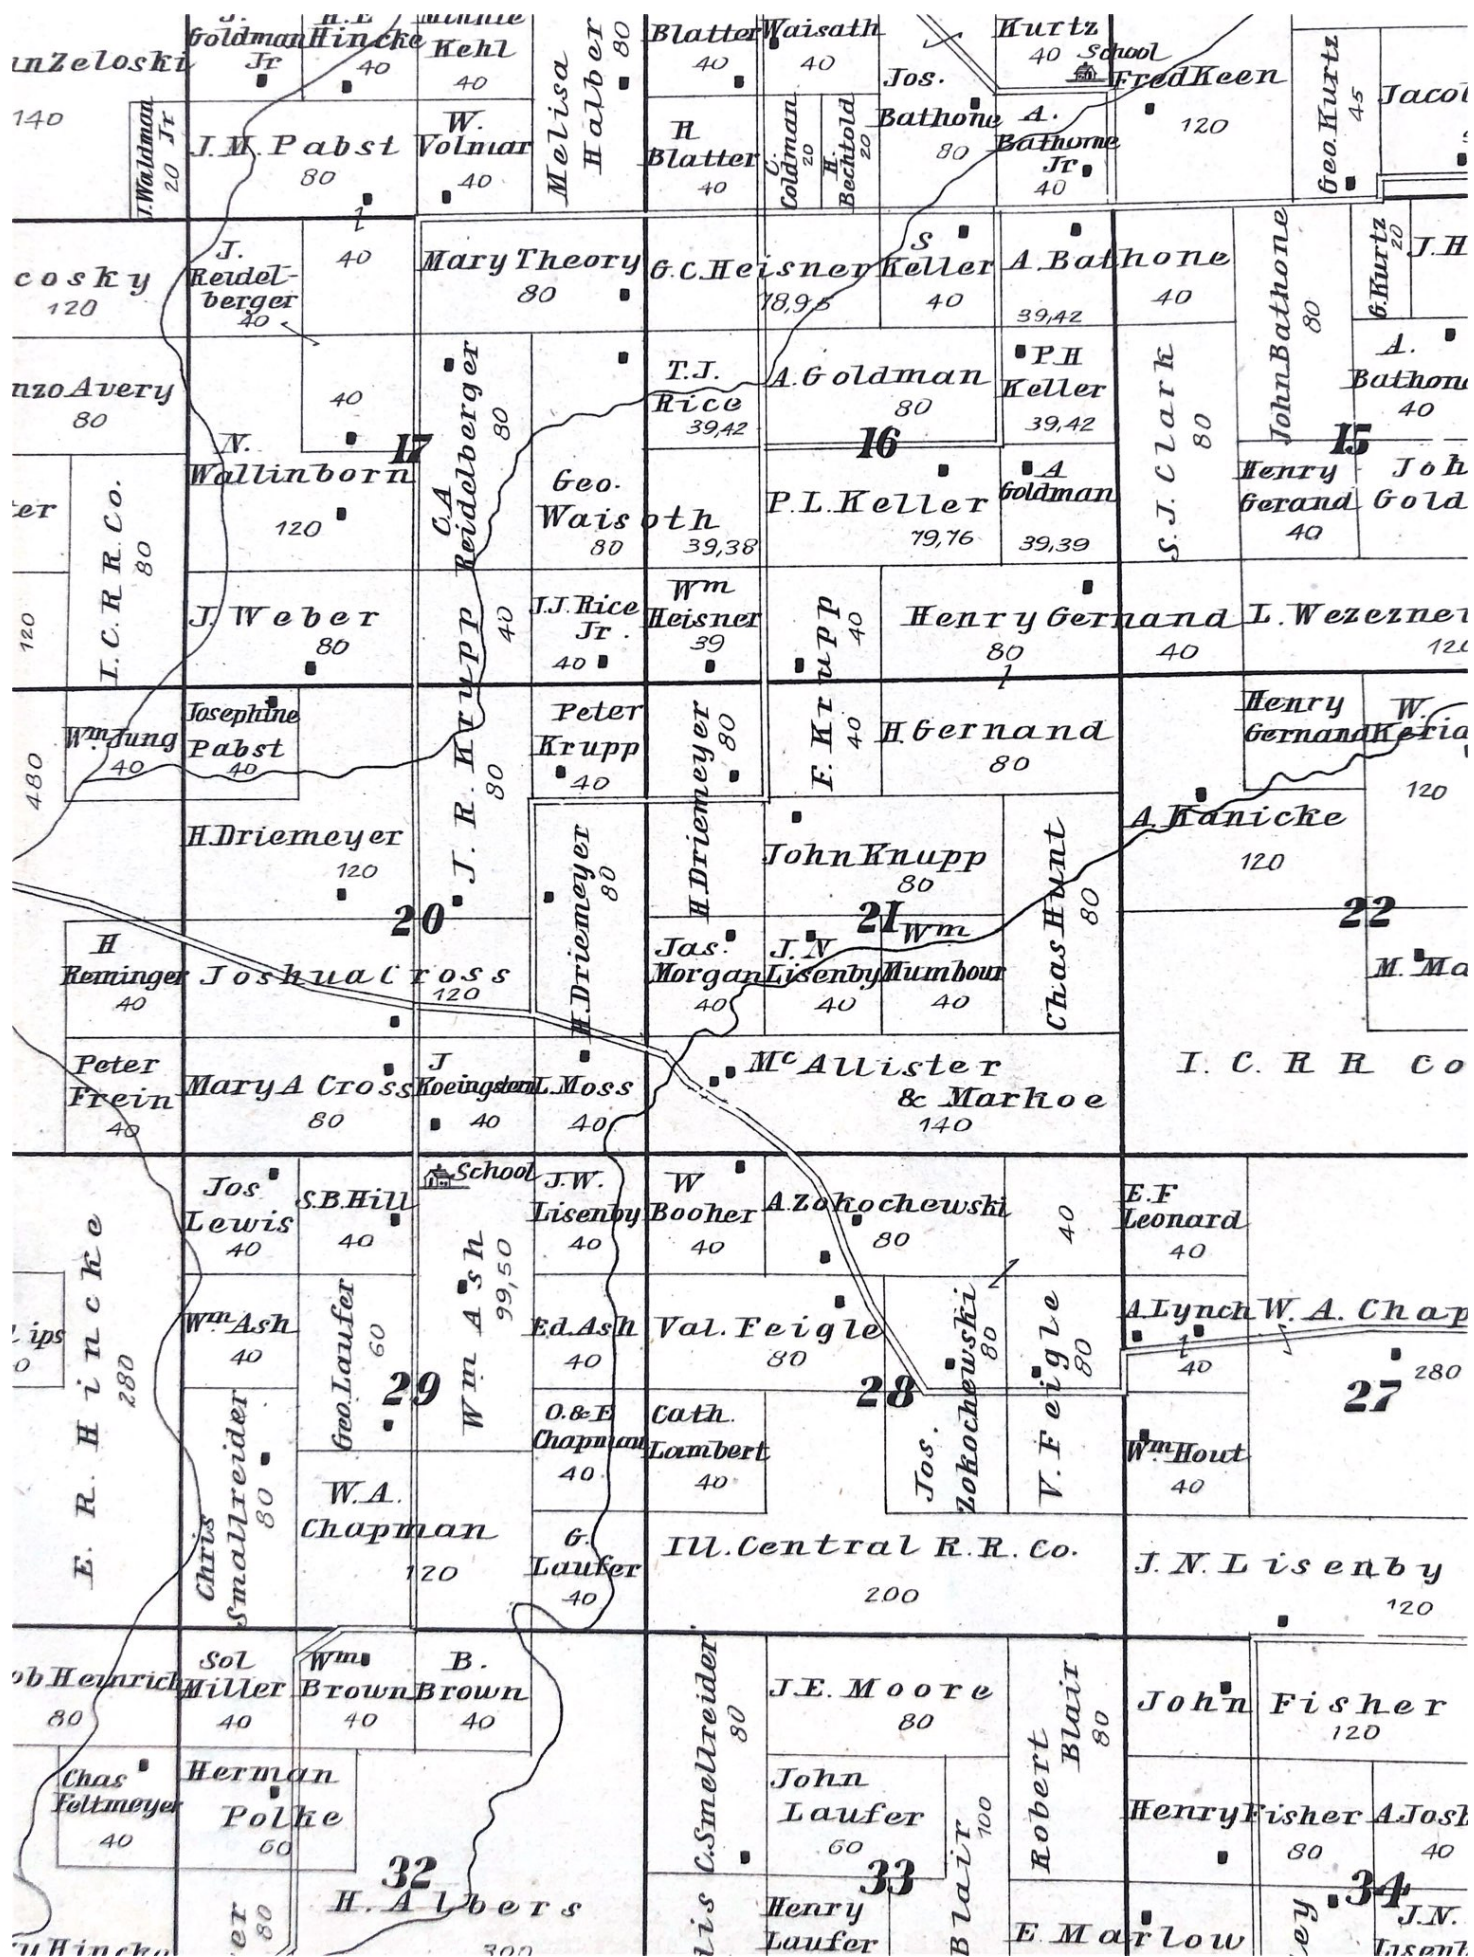 J.
Goldman
Jr
H.E
Hincke
40
Minnie
Kehl
40
Melisa
Halber
80
Blatter
40
Waisath
40
Jos.
Bathone
80
Kurtz
40
School
Fred Keen
120
Geo. Kurtz
45
Jacol
anZeloski
140
J. Waldman Jr
20
J. M. Pabst
80
W.
Volmar
40
H
Blatter
40
C.
Goldman
20
H.
Bechtold
20
A.
Bathone
Jr
40
cosky
120
J.
Reidel-
berger
40
40
Mary Theory
80
G.C. Heisner
78,95
S
Keller
40
A. Bathone
39,42
40
John Bathone
80
G. Kurtz
20
J. H
nzo Avery
80
40
C.A
Reidelberger
80
T.J.
Rice
39,42
A. Goldman
80
P. H
Keller
39,42
S. J. Clark
80
A.
Bathone
40
17
16
15
ter
I. C. R R. Co.
80
N.
Wallinborn
120
Geo.
Waisoth
80
39,38
P. L. Keller
79,76
A
Goldman
39,39
Henry
Gerand
40
Joh
Gold
120
J. Weber
80
40
J.J. Rice
Jr.
40
Wm
Heisner
39
F. Krupp
40
40
Henry Gernand
80
40
L. Wezezne
120
480
Wm. Jung
40
Josephine
Pabst
40
J. R. Krupp
80
Peter
Krupp
40
H. Driemeyer
80
H. Gernand
80
Henry
Gernand
W.
Keria
120
H. Driemeyer
120
H. Driemeyer
80
John Knupp
80
Chas Hunt
80
A. Kanicke
120
20
21
22
H
Reminger
40
Joshua Cross
120
Jas.
Morgan
40
J. N
Lisenby
40
Wm
Mumbour
40
M. Ma
Peter
Frein
40
Mary A Cross
80
J
Koeingstein
40
L. Moss
40
Mc Allister
& Markoe
140
I. C. R R Co
E. R. Hincke
280
Jos
Lewis
40
S.B. Hill
40
School
Wm Ash
99,50
J.W.
Lisenby
40
W
Booher
40
A. Zokochewski
80
40
E. F
Leonard
40
ips
0
Wm Ash
40
Geo. Laufer
60
Ed. Ash
40
Val. Feigle
80
Jos.
Zokochewski
80
V. Feigle
80
A. Lynch
40
W. A. Chap
280
29
28
27
Chris
Smallreider
80
O. & E
Chapman
40
Cath.
Lambert
40
Wm Hout
40
W. A.
Chapman
120
G.
Laufer
40
Ill. Central R. R. Co.
200
J. N. Lisenby
120
ob Heinrich
80
Sol
Miller
40
Wm
Brown
40
B.
Brown
40
C. Smellreider
80
J. E. Moore
80
Robert
Blair
80
John Fisher
120
Chas
Feltmeyer
40
Herman
Polke
60
John
Laufer
60
Blair
100
Henry Fisher
80
A Josh
40
32
33
34
H. Albers
300
er
80
lis
Henry
Laufer
E. Marlow
ey
J. N.
Lisenb
y Hincke